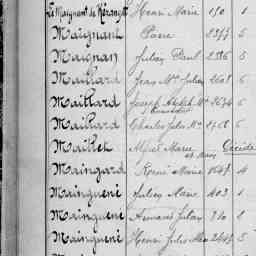 Le Maignant de Kérangat Henri Marie 150 1
Maignant Pierre 2377 5
Maignan Julien Paul 2386 5
Maillard Jean Mie Julien 2608 6
Maillard Joseph Aristide Mie 2674 6
Maillard Charles Jules Mie 2768 6
Maillet Alfred Marie Décédé
Maingard René Marie 1647 4
Mainguené Julien Marie 403 1
Mainguené Armand Julien 310 1
Mainguené Henri Jules Mie 2449 5